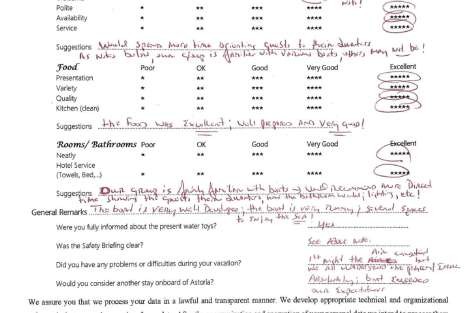 Polite * ** *** **** *****
Availability * ** *** **** *****
Service * ** *** **** *****
Suggestions Would spend more time orienting guests to their quarters
As noted below, our group is familiar with various boats, others may not be!
Food Poor OK Good Very Good Excellent
Presentation * ** *** **** *****
Variety * ** *** **** *****
Quality * ** *** **** *****
Kitchen (clean) * ** *** **** *****
Suggestions The Food was Excellent; well prepared and very good!
Rooms/ Bathrooms Poor OK Good Very Good Excellent
Neatly * ** *** **** *****
Hotel Service
(Towels, Bed,..) * ** *** **** *****
Suggestions Our group is fairly familiar with boats would recommend more Direct
time showing the guests their quarters, how the bathroom works, lighting, etc!
General Remarks The boat is very well Developed; the boat is very roomy; several spaces
to enjoy the Sea!
Were you fully informed about the present water toys? Yes
Was the Safety Briefing clear? See Above note.
Did you have any problems or difficulties during your vacation? 1st night the but
we all understand the
Would you consider another stay onboard of Astoria? Absolutely; boat exceeded
our expectations
We assure you that we process your data in a lawful and transparent manner. We develop appropriate technical and organizational